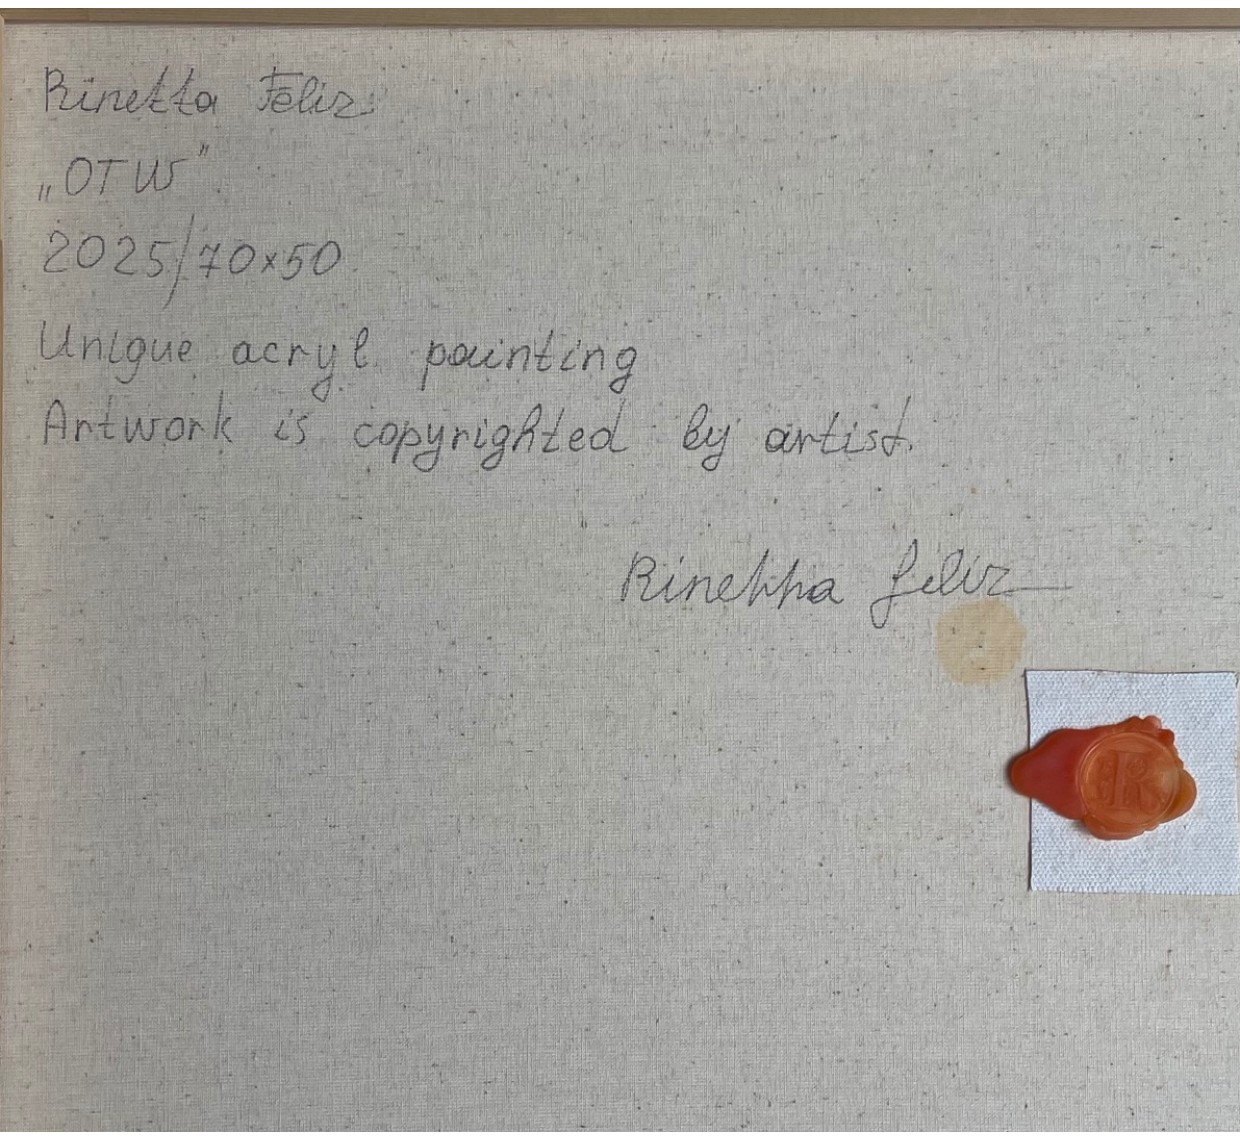 Rinetta Feliz
„OTW”
2025/70x50
Unique acryl painting
Artwork is copyrighted by artist.
Rinetta Feliz
R